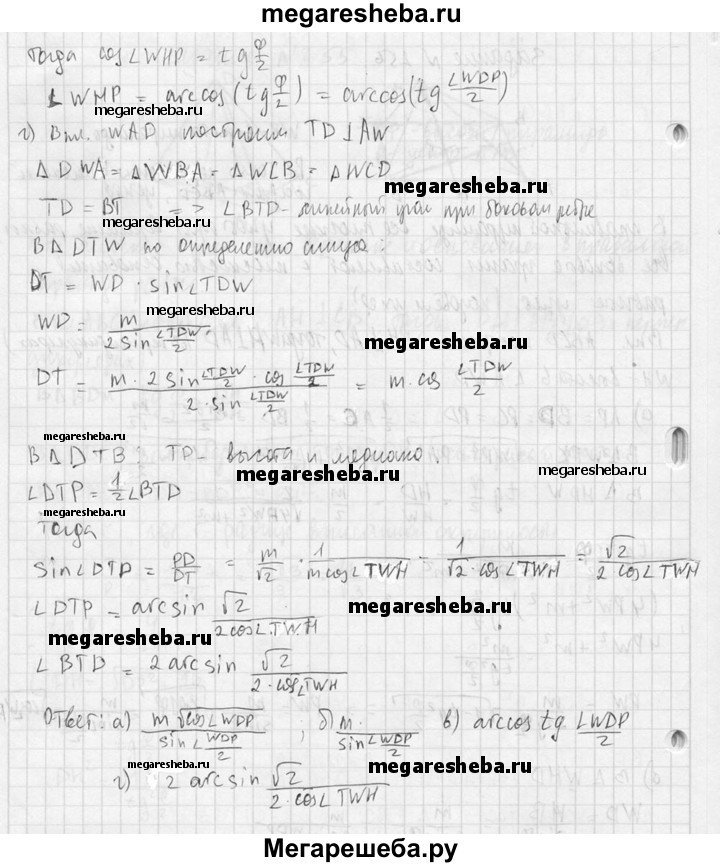 megaresheba.ru
Тогда cos∠WHP = tg φ/2
∠WHP = arccos(tg φ/2) = arccos(tg ∠WDP/2)
megaresheba.ru
г) В пл. WAD построим TD⊥AW
megaresheba.ru
ΔDWA = ΔWBA = ΔWCB = ΔWCD
megaresheba.ru
TD = BT => ∠BTD - линейный угол при боковом ребре
megaresheba.ru
В ΔDTW по определению синуса:
DT = WD · sin∠TDW
WD = m / (2 sin ∠TDW/2)
megaresheba.ru
megaresheba.ru
DT = (m · 2 sin ∠TDW/2 · cos ∠TDW/2) / (2 · sin ∠TDW/2) = m · cos ∠TDW/2
megaresheba.ru
В ΔDTB: TP - высота и медиана.
megaresheba.ru
megaresheba.ru
∠DTP = 1/2 ∠BTD
megaresheba.ru
Тогда
sin∠DTP = PD/DT = m/√2 · 1/(m cos∠TWH) = 1/(√2 · cos∠TWH) = √2/(2 cos∠TWH)
∠DTP = arcsin √2/(2 cos∠TWH)
megaresheba.ru
megaresheba.ru
∠BTD = 2 arcsin √2/(2 · cos∠TWH)
Ответ: а) m√cos∠WDP / (sin ∠WDP/2) ; б) m / (sin ∠WDP/2) в) arccos tg ∠WDP/2
megaresheba.ru
megaresheba.ru
г) 2 arcsin √2/(2 · cos∠TWH)
Мегарешеба.ру